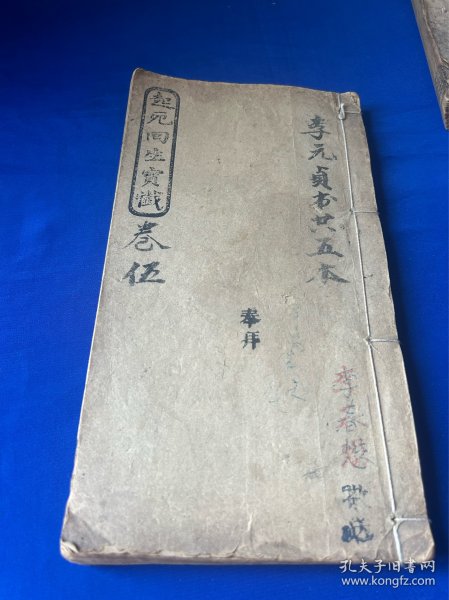 起死回生寶懺
卷伍
李元貞方廿五本
奉拜
李春懋
孔夫子旧书网
www.kongfz.com